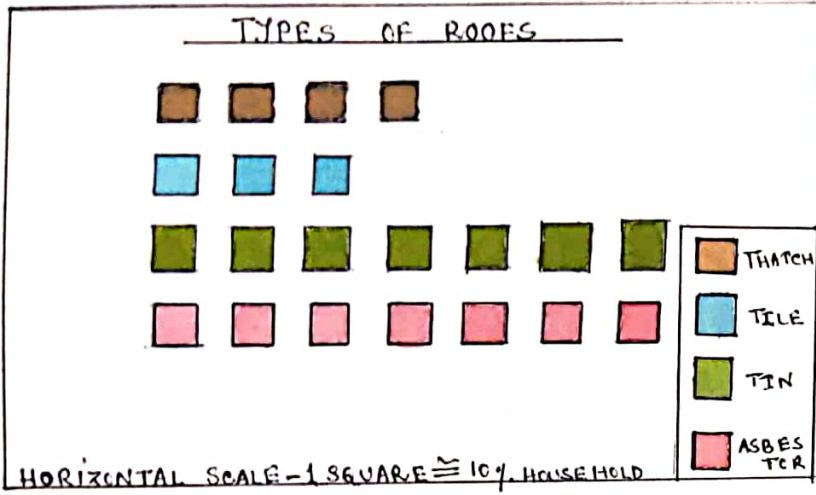 TYPES OF ROOFS
THATCH
TILE
TIN
ASBES
TOR
HORIZONTAL SCALE - 1 SQUARE ≅ 10%. HOUSEHOLD